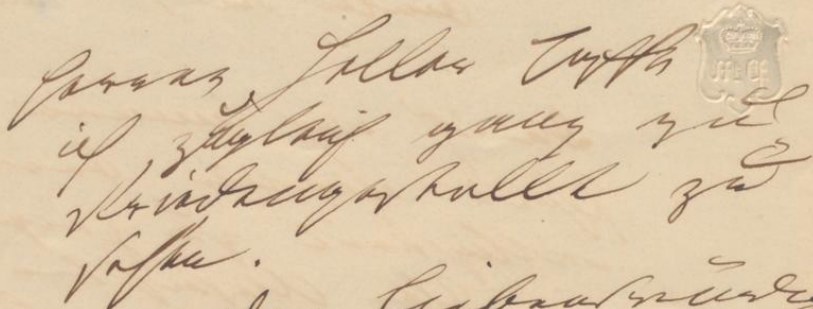 hoffe
ich zugleich ganz zu
friedengestellt zu
sehen.
Liebenswürdig